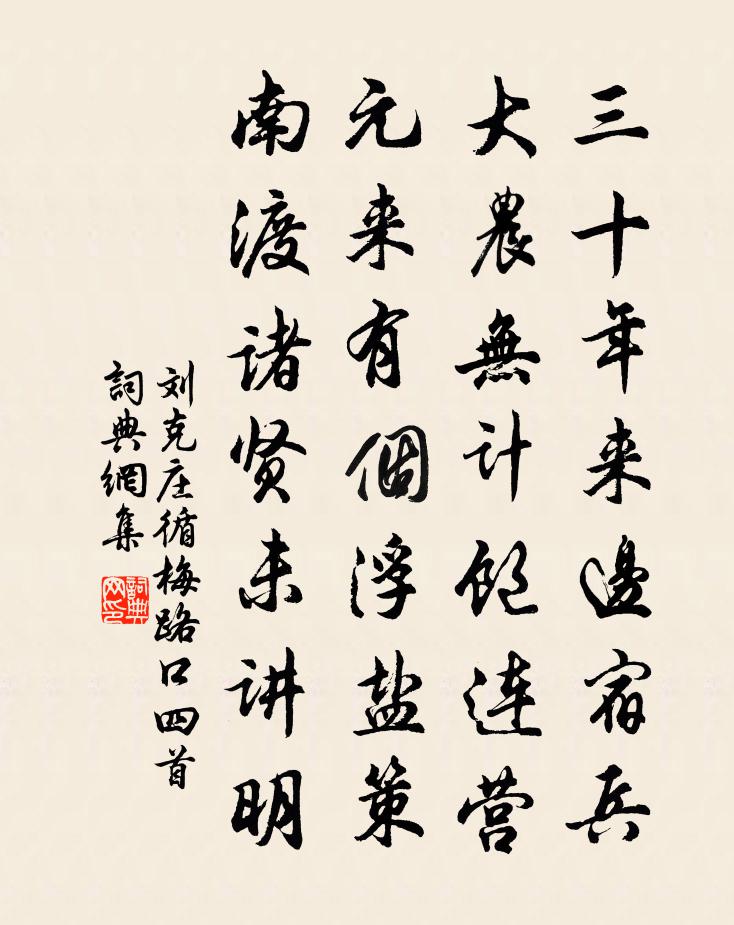 三十年来邊宿兵
大農無计饱連营
元来有個浮盐策
南渡诸贤未讲明
刘克庄循梅路口四首
詞典網集
詞典网印